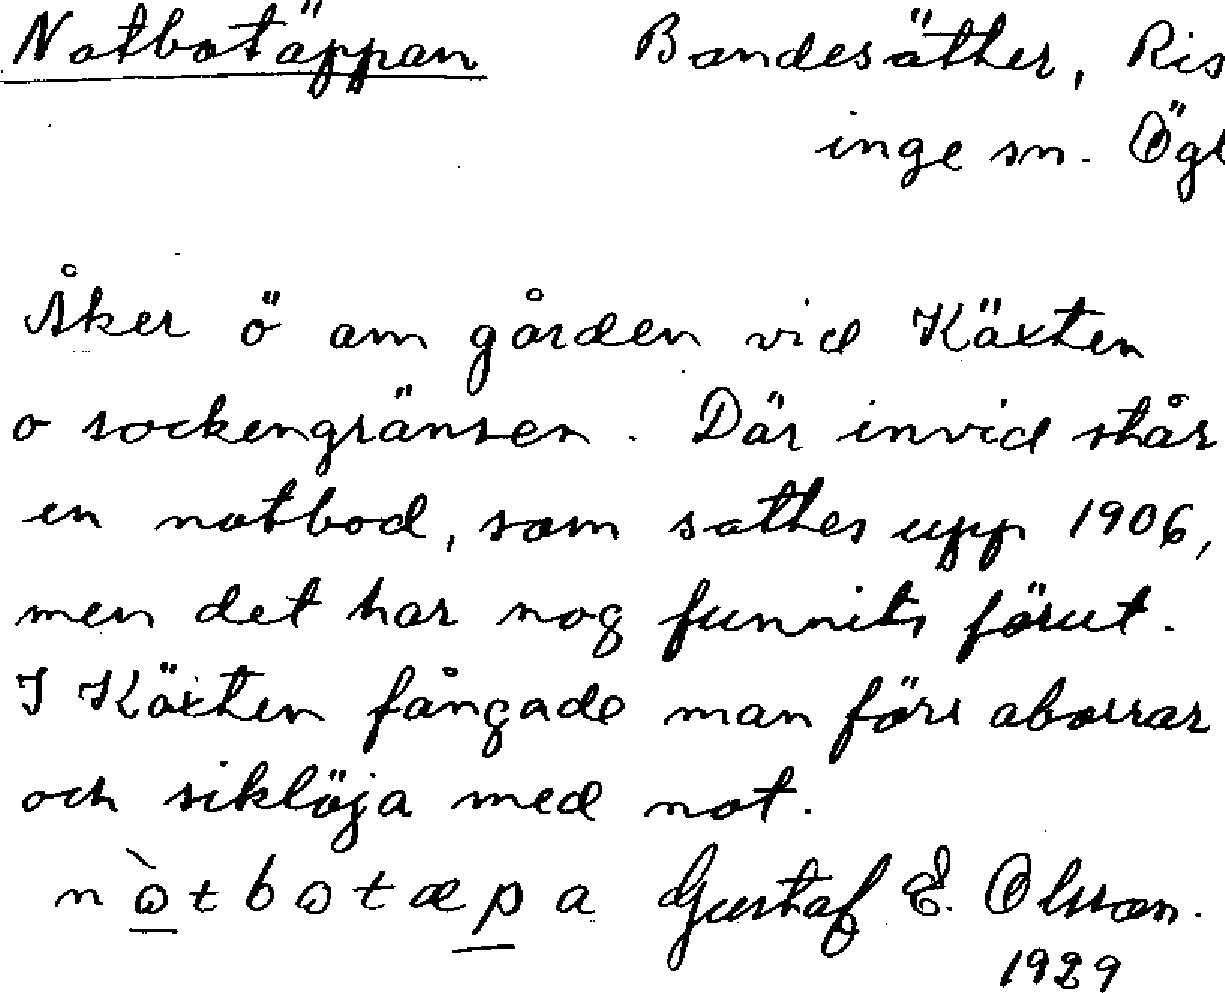 Notbotäppan Bondesätter, Ris
inge sn. Ögl
Åker ö om gården vid Käxten
o sockengränsen. Där invid står
en notbod, som sattes upp 1906,
men det har nog funnits förut.
I Käxten fångade man förr aborrar
och siklöja med not.
Gustaf E. Olsson.
1929